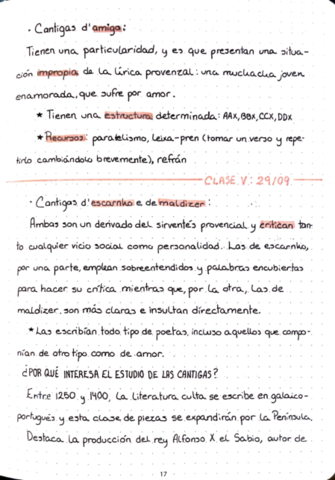 · Cantigas d'amiga:
Tienen una particularidad, y es que presentan una situa-
ción impropia de la lírica provenzal: una muchacha joven
enamorada, que sufre por amor.
* Tienen una estructura determinada: AAX, BBX, CCX, DDX
* Recursos: paralelismo, leixa-pren (tomar un verso y repe-
tirlo cambiándolo brevemente), refrán
CLASE V: 29/09
· Cantigas d'escarnho e de maldizer:
Ambas son un derivado del sirventés provencial y critican tan-
to cualquier vicio social como personalidad. Las de escarnho,
por una parte, emplean sobreentendidos y palabras encubiertas
para hacer su crítica mientras que, por la otra, las de
maldizer, son más claras e insultan directamente.
* Las escribían todo tipo de poetas, incluso aquellos que compo-
nían de otro tipo como de amor.
¿POR QUÉ INTERESA EL ESTUDIO DE LAS CANTIGAS?
Entre 1250 y 1400, la literatura culta se escribe en galaico-
portugués y esta clase de piezas se expandirán por la Península.
Destaca la producción del rey Alfonso X el Sabio, autor de
17